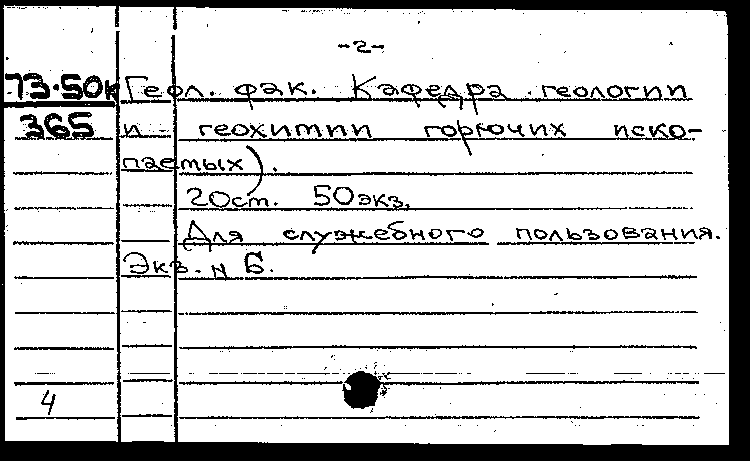 -2-
73.50к Геол. фак. Кафедра геологии
365 и геохимии горючих иско-
паемых).
20ст. 50экз.
Для служебного пользования.
Экз. N 6.
4